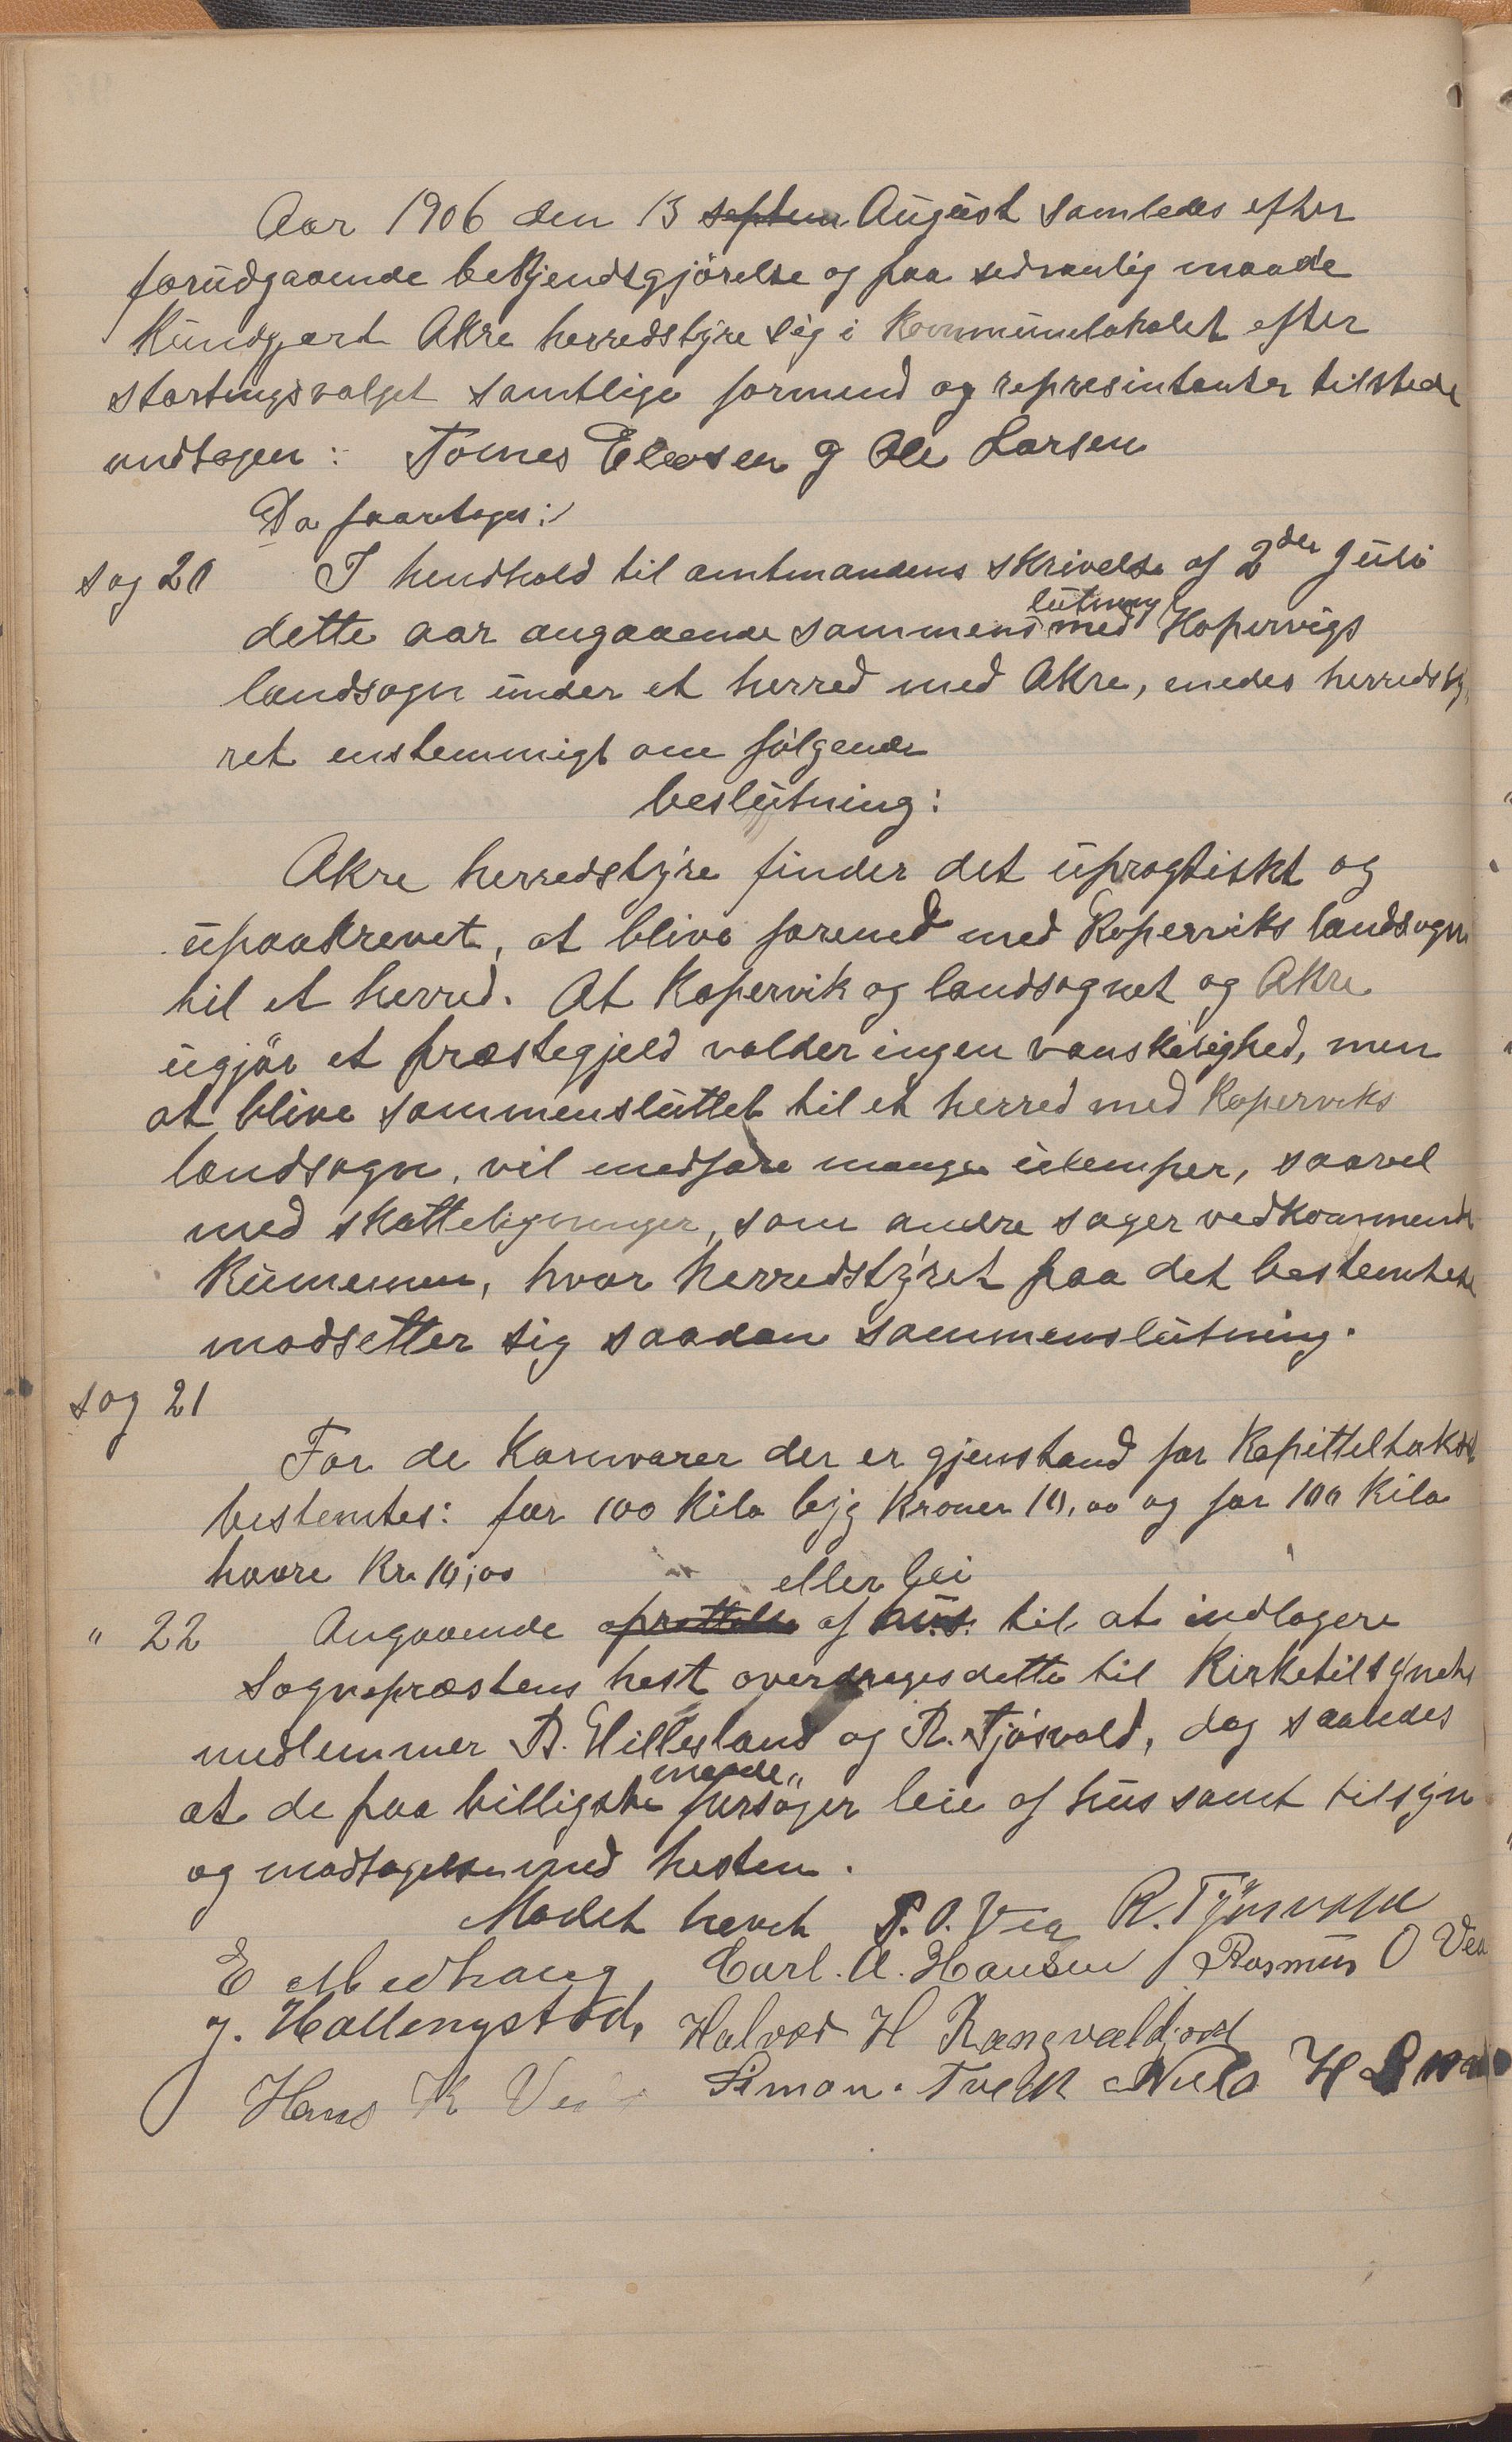 Aar 1906 den 13 septem August samledes efter
forudgaaende bekjendtgjörelse og paa sedvanlig maade
Kundgjort Akre herredstyre sig i Kommunelokalet efter
stortingsvalget samtlige formend og represintanter tilstede
undtagen: Tomes Eliasen og Ole Larsen
Da foaretoges:
sag 20 I hendhold til amtmandens skrivelse af 2den Juli
dette aar angaaende sammenslutning med Kopervigs
landsogn under et herred med Akre, enedes herredsty-
ret enstemmigt om følgende
beslutning:
Akre herredstyre finder det upragtiskt og
upaakrevet, at blive forened med Koperviks landsogn
til et herred. At Kopervik og landsognet og Akre
ugjör et præstegjeld volder ingen vanskelighed, men
at blive sammensluttet til et herred med Koperviks
landsogn, vil medføre mange ulemper, saavel
med skatteligninger, som andre sager vedkommende
Kumenen, hvor herredstyret paa det bestemteste
modsetter sig saadan sammenslutning.
sag 21
For de Kornvarer der er gjenstand for Kapitteltakst
bestemtes: for 100 Kilo byg Kroner 10,00 og for 100 Kilo
havre Kr. 10,00
eller lei
" 22 Angaaende oprettelse af hus til at indlogere
Sognepræstens hest overdrages dette til Kirketilsynets
medlemmer B. Hillesland og R. Tjösvold, dog saaledes
at de paa billigste maade forsöger leie af hus samt tilsyn
og modtagelse med hesten.
Mødet hevet P. O. Vea R. Tjösvold
E Medhaug, Carl. A. Hansen Rasmus O Vea
J. Hallengstad, Halvor H Rangvaldjord
Hans K Ve Simon. Tveit Niels H